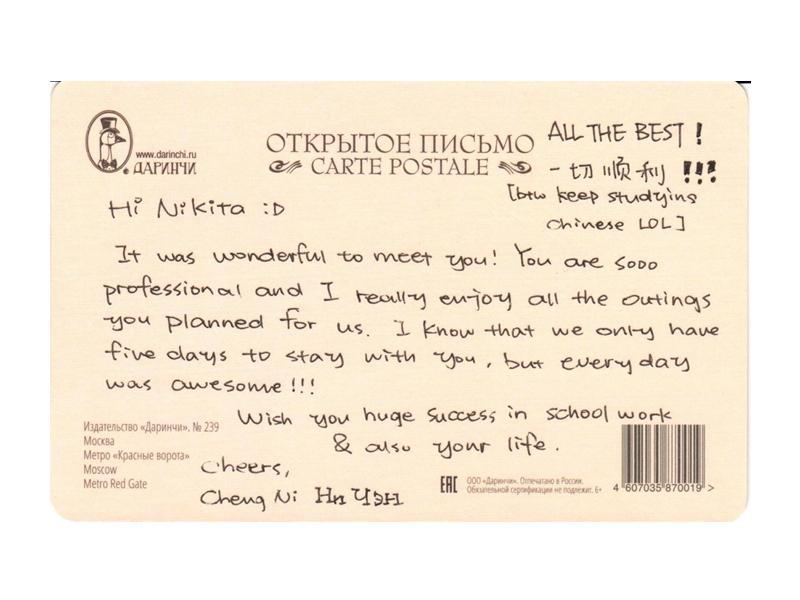 www.darinchi.ru
ДАРИНЧИ
ОТКРЫТОЕ ПИСЬМО
CARTE POSTALE
ALL THE BEST!
一切顺利!!!
[btw keep studying
chinese LOL]
Hi Nikita :D
It was wonderful to meet you! You are sooo
professional and I really enjoy all the outings
you planned for us. I know that we only have
five days to stay with you, but every day
was awesome!!!
Wish you huge success in school work
& also your life.
Cheers,
Cheng Ni Ни Чэн
Издательство «Даринчи», № 239
Москва
Метро «Красные ворота»
Moscow
Metro Red Gate
EAC
ООО «Даринчи». Отпечатано в России.
Обязательной сертификации не подлежит. 6+
4 607035 870019 >